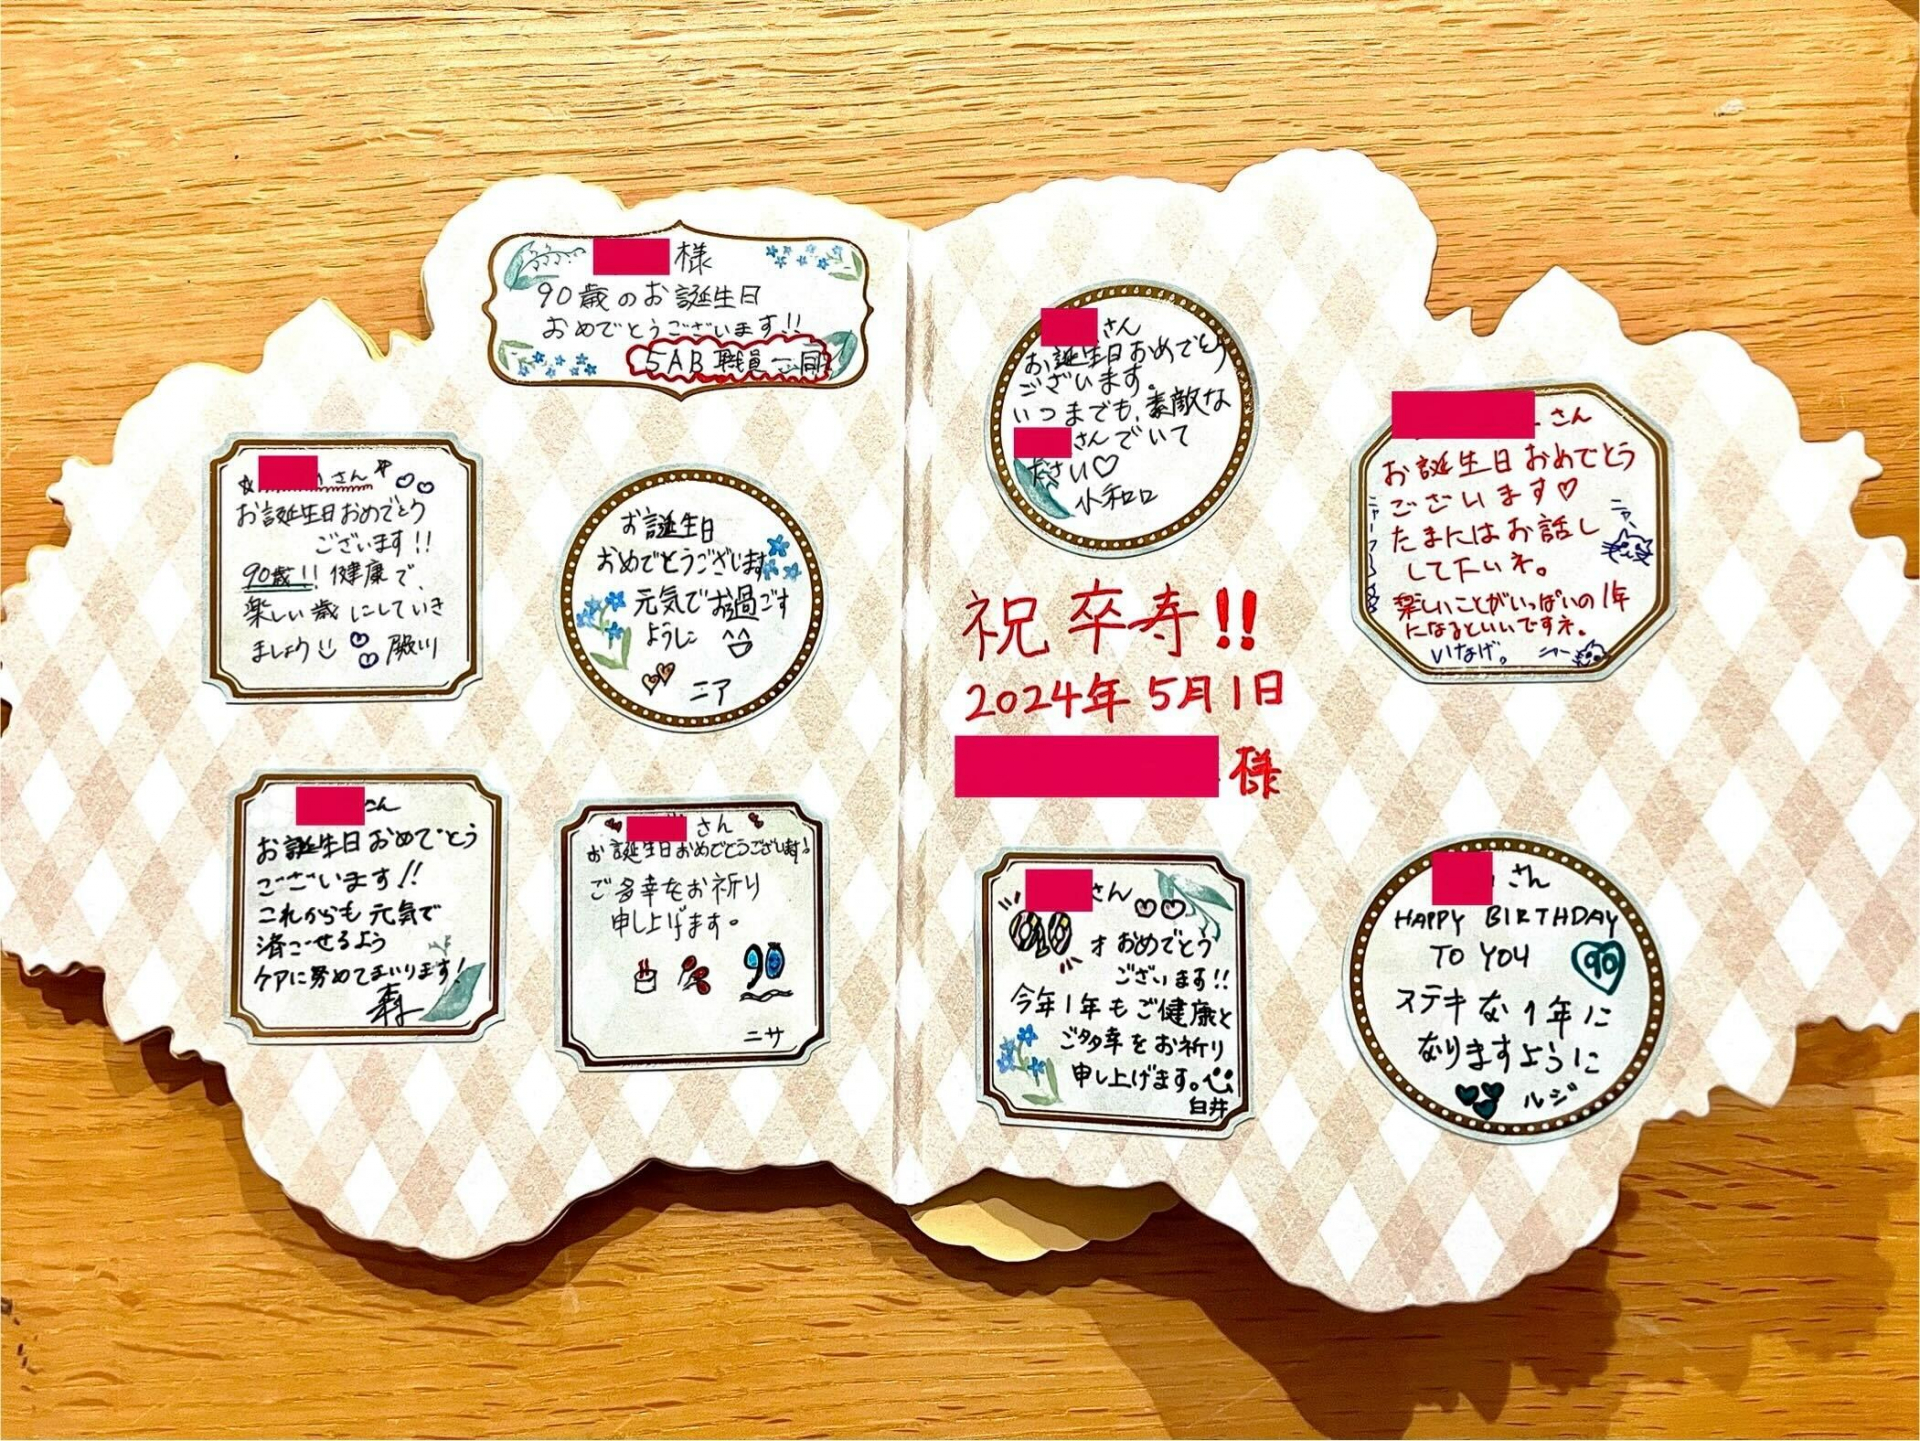 様
90歳のお誕生日
おめでとうございます!!
5AB 職員一同
さん
お誕生日おめでとう
ございます!!
90歳!! 健康で、
楽しい歳にしていき
ましょう
お誕生日
おめでとうございます
元気でお過ごす
ように
ニア
さん
お誕生日おめでとう
ございます!!
これからも元気で
過ごせるよう
ケアに努めてまいります!
森
さん
お誕生日おめでとうございます!
ご多幸をお祈り
申し上げます。
90
ニサ
さん
お誕生日おめでとう
ございます。
いつまでも、素敵な
さんでいて
ださい♡
小和口
祝卒寿!!
2024年5月1日
様
さん
お誕生日おめでとう
ございます♡
たまにはお話し
して下いネ。
楽しいことがいっぱいの1年
になるといいですネ。
いなげ。
ニャー
さん
90才おめでとう
ございます!!
今年1年もご健康と
ご多幸をお祈り
申し上げます。
白井
さん
HAPPY BIRTHDAY
TO YOU
90
ステキな1年に
なりますように
ルジ